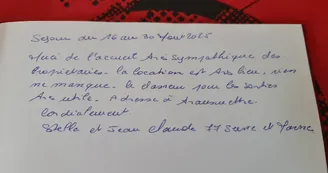 Sejour du 16 au 30 Aout 2025
Merci de l'accueil très sympathique des
propriétaires. la location est très bien, rien
ne manque. le classeur pour les sorties
très utile. Adresse à transmettre.
Cordialement
Stella et Jean Claude 77 Seine et Marne